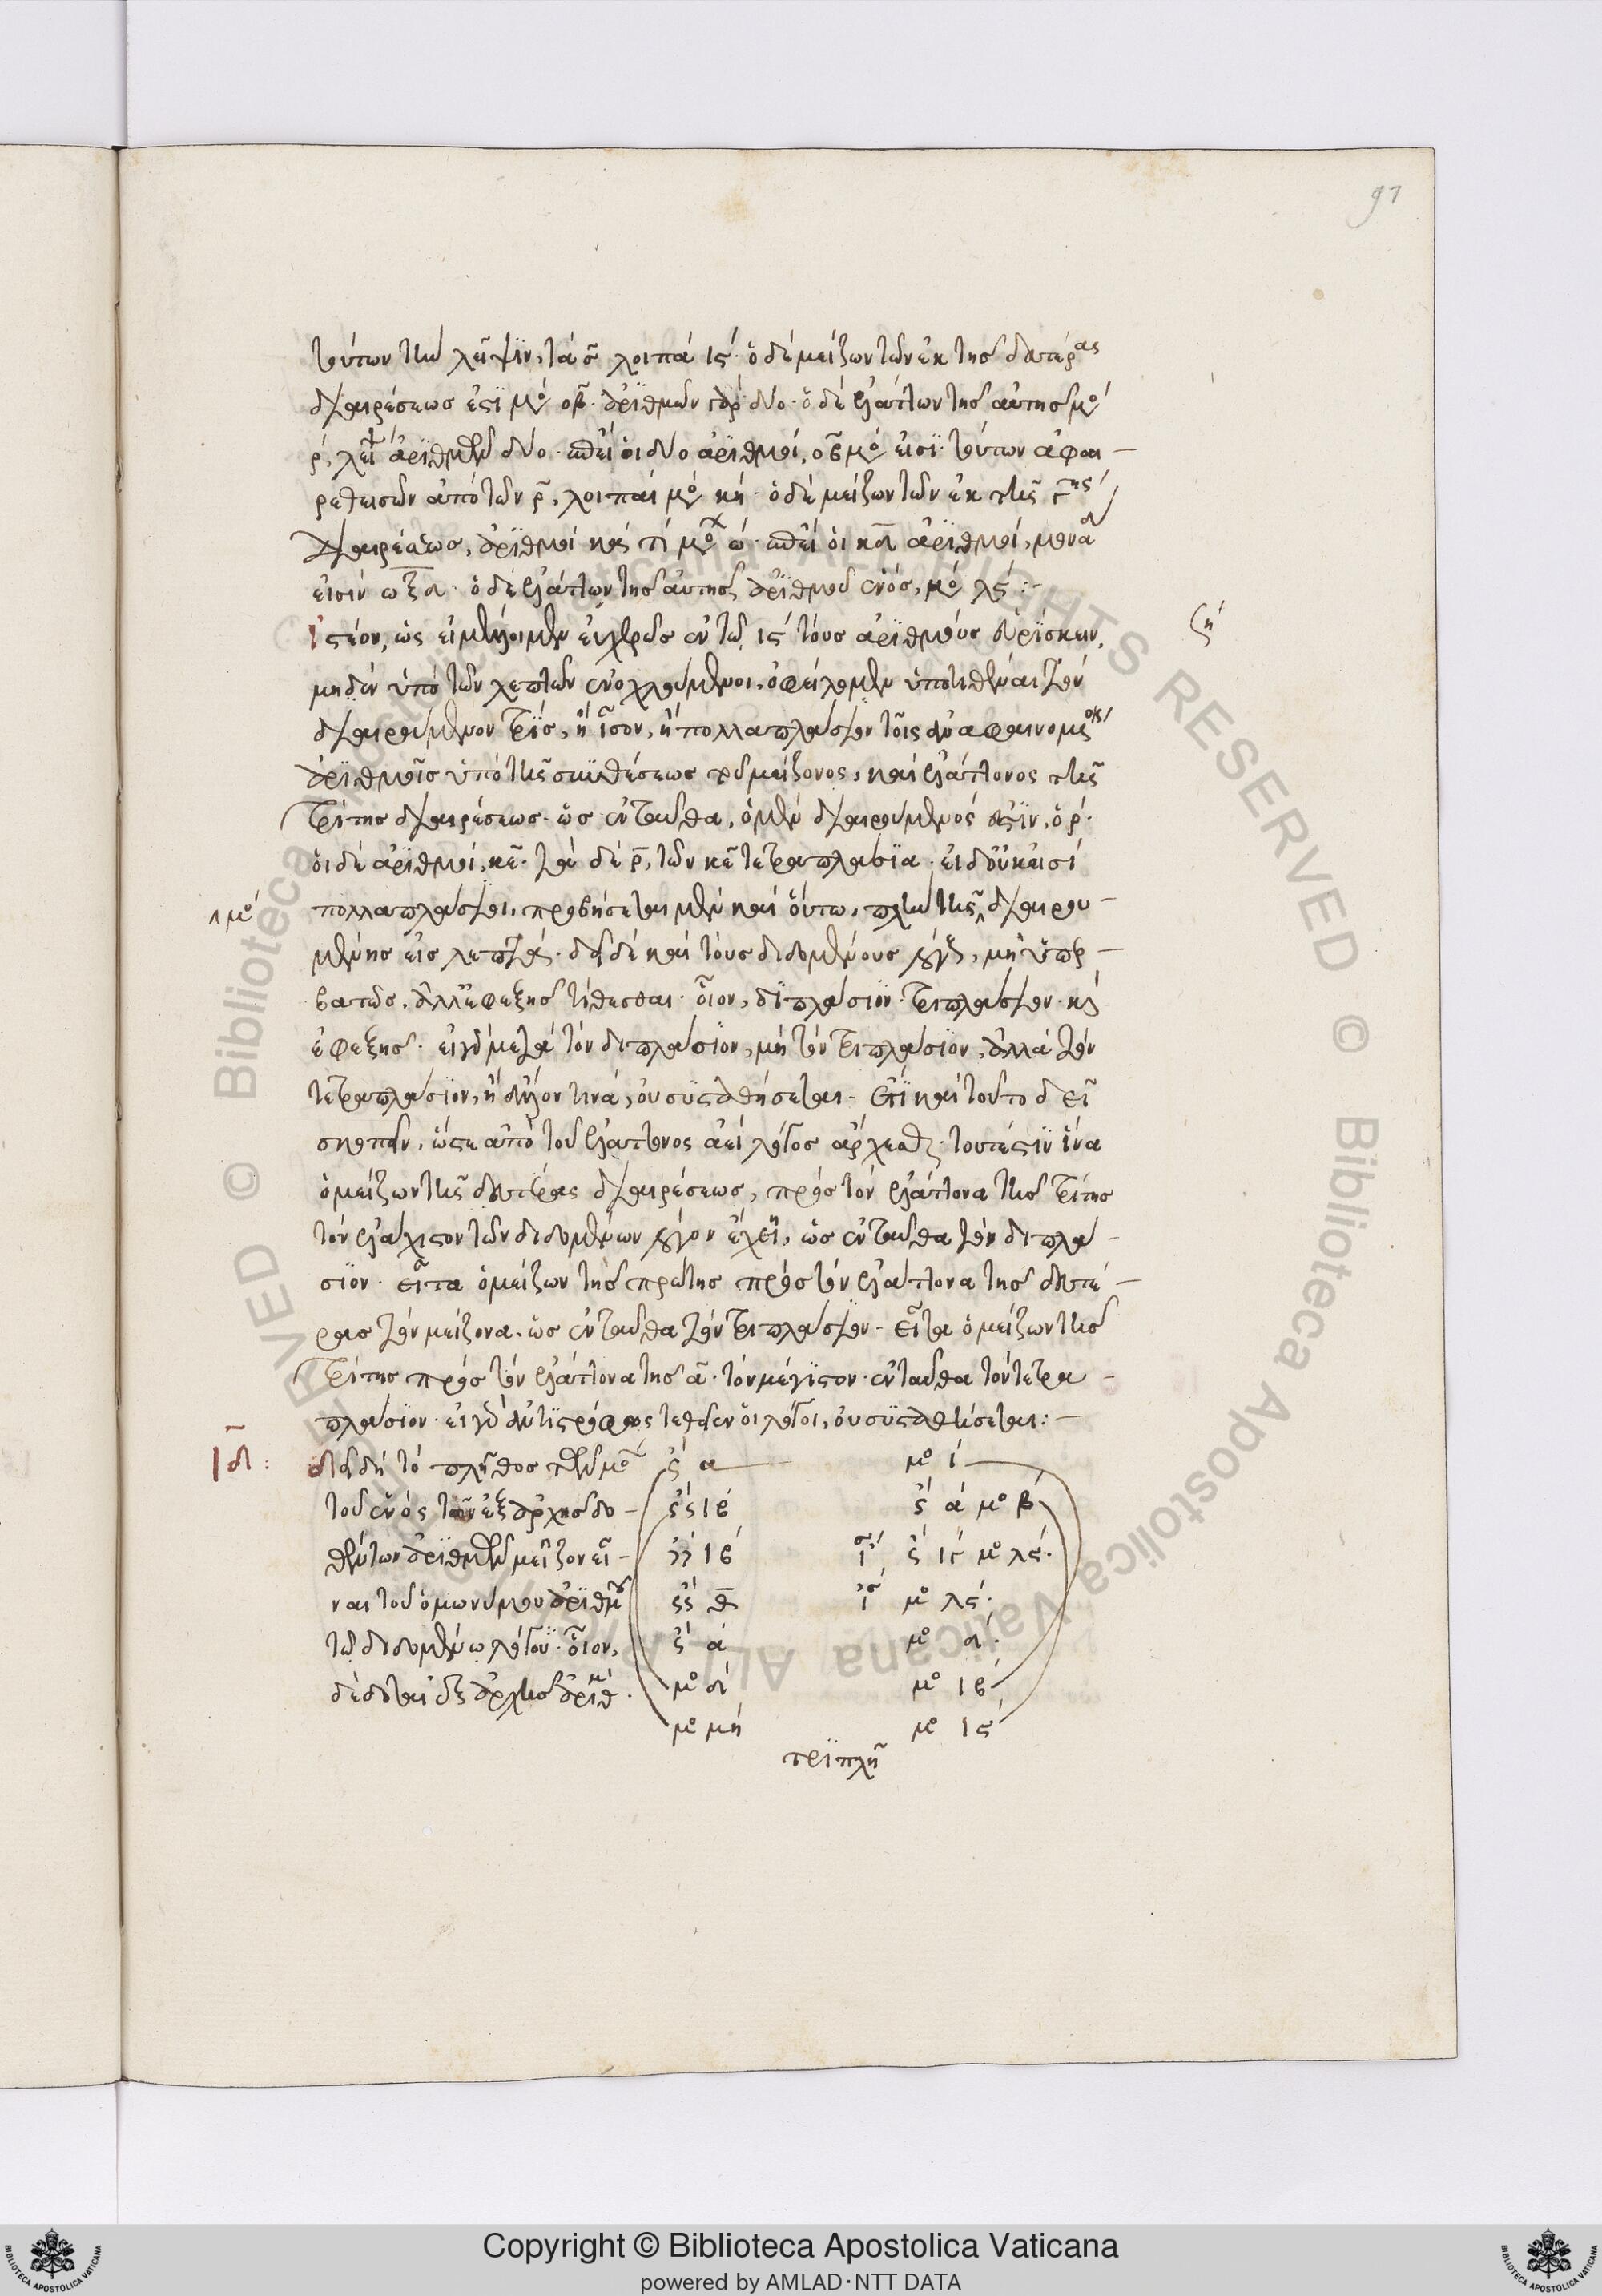 97
τούτων τὴν λεῖψιν, τὰ σ̄ λοιπά ις΄· ὁ δὲ μείζων τῶν ἐκ τῆς δευτέρας
διαιρέσεως ἐστὶ μο οβ· ἀριθμῶν γὰρ δύο· ὁ δὲ ἐλάττων τῆς αὐτῆς μο
ρ΄, λείψει ἀριθμῶν δύο· ἐπεὶ οἱ δύο ἀριθμοί, οβ μο εἰσί· τούτων ἀφαι-
ρεθεισῶν ἀπὸ τῶν ρ̄, λοιπαί μο κη΄· ὁ δὲ μείζων τῶν ἐκ τῆς γ̄ης
διαιρέσεως, ἀριθμοί κδ΄
εἰσίν ωξδ· ὁ δὲ ἐλάττων τῆς αὐτῆς ἀριθμοῦ ἑνός, μο λς΄:-
ἰστέον, ὡς εἰ μέλλοιμεν εὐχερῶς ἐν τῷ ις΄ τοὺς ἀριθμοὺς εὑρίσκειν,
ζη΄
μηδὲν ὑπὸ τῶν λεπτῶν ἐνοχλούμενοι, ὀφείλομεν ὑποτιθέναι τὸν
διαιρούμενον τρίς, ἢ ἴσον, ἢ πολλαπλάσιον τοῖς ἀναφαινομένοις
ἀριθμοῖς ὑπὸ τῆς συνθέσεως τοῦ μείζονος, καὶ ἐλάττονος τῆς
τρίτης διαιρέσεως· ὡς ἐνταῦθα, ὁ μὲν διαιρούμενός ἐστιν, ὁ ρ΄·
οἱ δὲ ἀριθμοί, κε̄· τὰ δὲ ρ̄, τῶν κε̄ τετραπλάσια· εἰ δ' οὔκ εἰσί
μο
πολλαπλάσιοι, προβήσεται μὲν καὶ οὕτω, πλὴν τῆς διαιρου-
μένης εἰς λεπτά· δεῖ δὲ καὶ τοὺς διδομένους λόγους, μὴ ὑπερ-
βατῶς, ἀλλ' ἐφεξῆς τίθεσθαι· οἷον, διπλάσιον· τριπλάσιον· καὶ
ἐφεξῆς· εἰ γὰρ μετὰ τὸν διπλάσιον, μὴ τὸν τριπλάσιον, ἀλλὰ τὸν
τετραπλάσιον, ἢ ἄλλον τινά, οὐ συσταθήσεται· ἔτι καὶ τοῦτο δεῖ
σκοπεῖν, ὥστε ἀπὸ τοῦ ἐλάττονος ἀεὶ λόγος ἄρχεσθαι· τουτέστιν ἵνα
ὁ μείζων τῆς δευτέρας διαιρέσεως, πρὸς τὸν ἐλάττονα τῆς τρίτης
τὸν ἐλάχιστον τῶν διδομένων λόγον ἔχει, ὡς ἐνταῦθα τὸν διπλά-
σιον· εἶτα ὁ μείζων τῆς πρώτης πρὸς τὸν ἐλάττονα τῆς δευτέ-
ρας τὸν μείζονα· ὡς ἐνταῦθα τὸν τριπλάσιον· εἶτα ὁ μείζων τῆς
τρίτης πρὸς τὸν ἐλάττονα τῆς ᾱ· τὸν μέγιστον· ἐνταῦθα τὸν τετρα-
πλάσιον· εἰ γὰρ ἀντιστρόφως τεθεῖεν οἱ λόγοι, οὐ συσταθήσεται:-
ιδ:
διὰ δὴ τὸ πλῆθος τῶν μο
τοῦ ἑνὸς τῶν ἐξ ἀρχῆς δο-
θέντων ἀριθμῶν μεῖζον εἶ-
ναι τοῦ ὁμωνύμου ἀριθμοῦ
τῷ διδομένῳ λόγου· οἷον,
δέδοται ἐξ ἀρχῆς ἀριθμ.
ς α μο ι
ςς ιβ ς α μο β
ιβ ς ις μο λς·
ςς θ μο λς·
ς α μο δ·
μο δ μο ιβ
μο μη μο ις
τριπλῆ